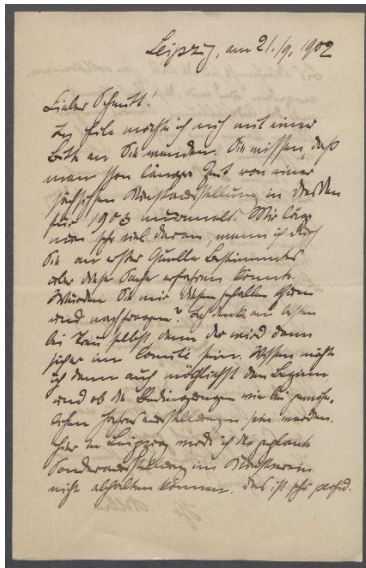 Leipzig, am 21./9. 1902
Lieber Schmitt!
In Eile möchte ich mich mit einer
Bitte an Sie wenden. Sie wissen, daß
man schon längere Zeit von einer
sächsischen Kunstausstellung in Dresden
für 1903 munkelt. Mir läge
nun sehr viel daran, wenn ich durch
Sie an erster Quelle Bestimmtes
über diese Sache erfahren könnte.
Würden Sie mir diesen Gefallen thun
und nachfragen? Ich denke am besten
bei selbst, denn der wird dann
sicher im Comité sein. Wissen möchte
ich dann auch möglichst den Beginn
und ob die Bedingungen wie bei
sein werden.
Hier in Leipzig werde ich die geplante
Sonderausstellung im Kunstverein
nicht abhalten können. Das ist sehr